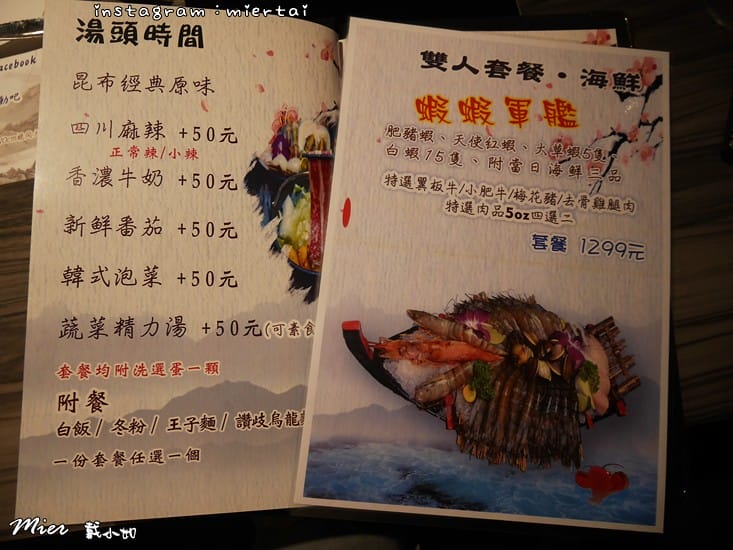 instagram：miertai
acebook
湯頭時間
昆布經典原味
四川麻辣 +50元
正常辣/小辣
香濃牛奶 +50元
新鮮番茄 +50元
韓式泡菜 +50元
蔬菜精力湯 +50元(可素食
套餐均附洗選蛋一顆
附餐
白飯/冬粉/王子麵/讚岐烏龍
一份套餐任選一個
雙人套餐·海鮮
蝦蝦軍艦
肥豬蝦、天使紅蝦、大草蝦5隻、
白蝦15隻、附當日海鮮三品
特選翼板牛/小肥牛/梅花豬/去骨雞腿肉
特選肉品5oz四選二
套餐 1299元
Mier 戴小如